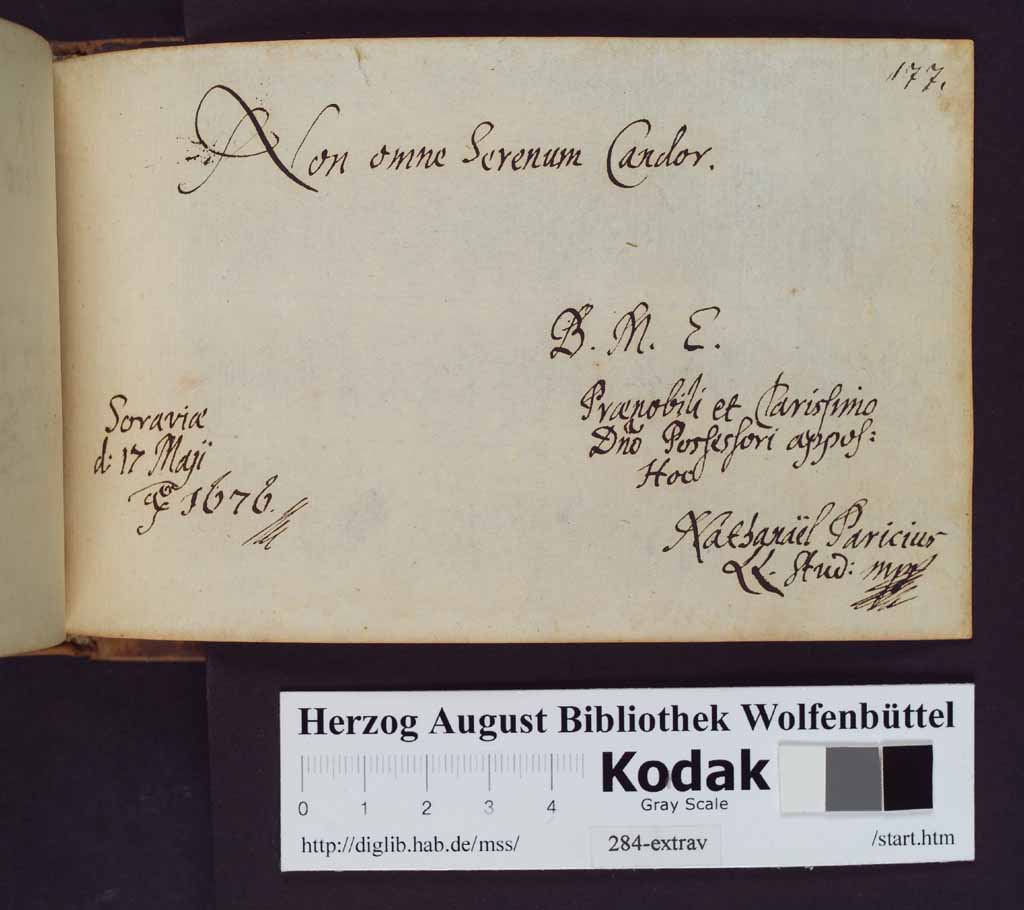 177.
Non omne Serenum Candor.
B. M. E.
Prænobili et Clarissimo
Dno Possessori appos:
Hoc
Nathanaël Paricius
LL. Stud: mpr
Soraviæ
d: 17 Maji
1676.
Herzog August Bibliothek Wolfenbüttel
Kodak
Gray Scale
0 1 2 3 4
http://diglib.hab.de/mss/ 284-extrav /start.htm